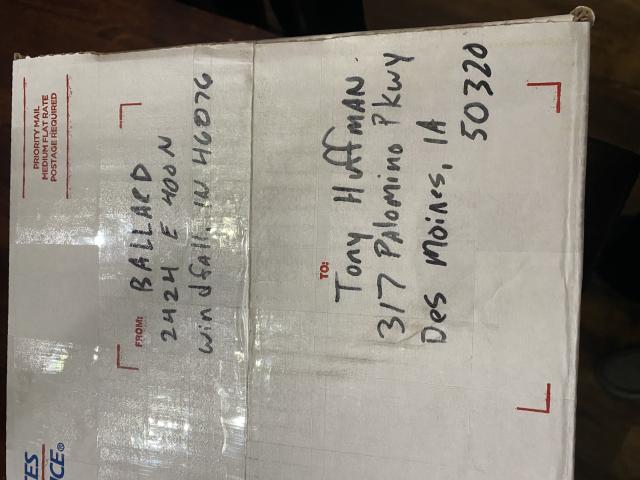 PRIORITY MAIL
MEDIUM FLAT RATE
POSTAGE REQUIRED
FROM:
BALLARD
2424 E 400 N
Windfall, IN 46076
TO:
Tony HuffMAN
317 Palomino Pkwy
Des Moines, IA
50320
TES
ICE®